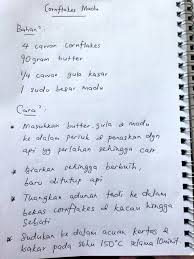 Cornflakes Madu
Bahan²:
4 cawan cornflakes
90 gram butter
1/4 cawan gula kasar
1 sudu besar madu
Cara²:
* Masukkan butter, gula & madu
ke dalam periuk & panaskan dgn
api yg perlahan sehingga cair
* Biarkan sehingga berbuih,
baru ditutup api
* Tuangkan adunan tadi ke dalam
bekas cornflakes & kacau hingga
sebati
* Sudukan ke dalam acuan kertas &
bakar pada suhu 150°C selama 10minit.